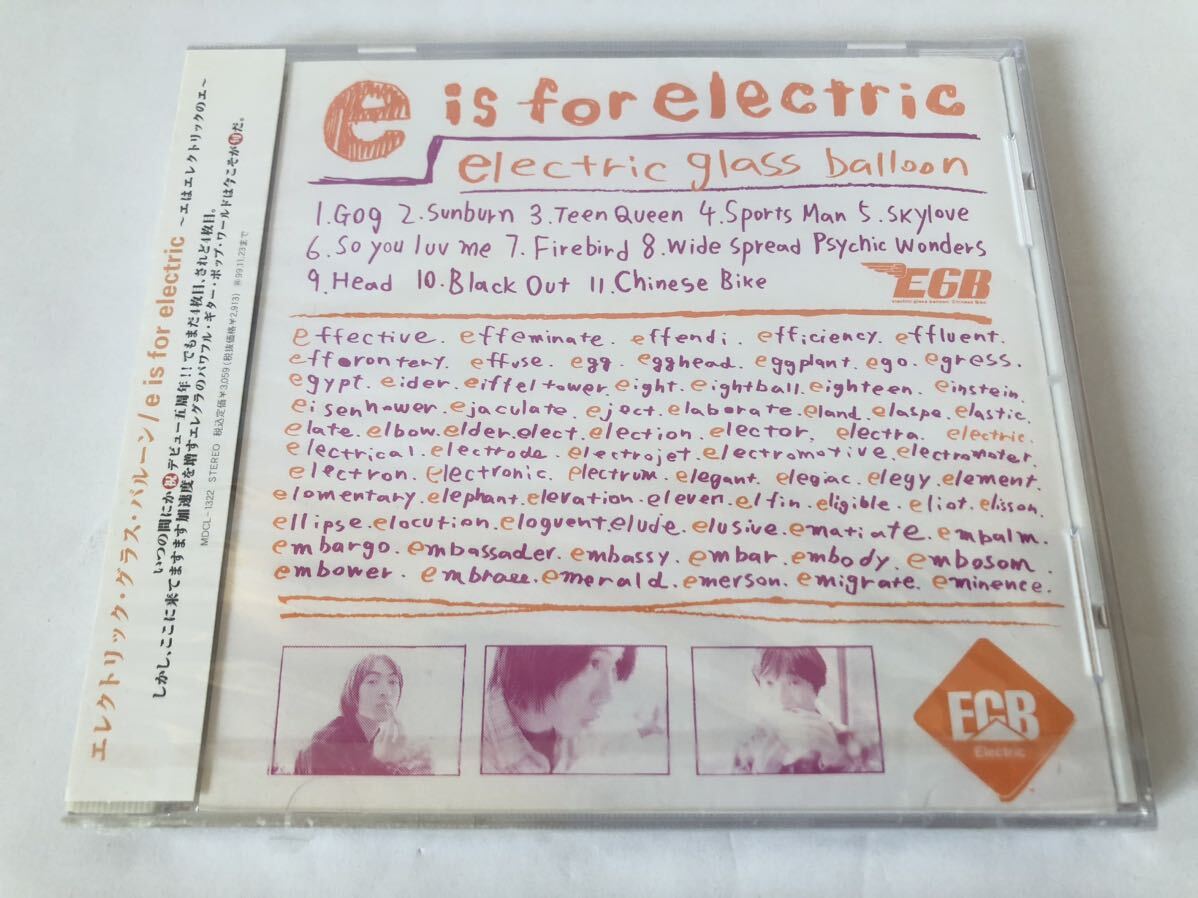 e is for electric
electric glass balloon
1. Gog 2. Sunburn 3. Teen Queen 4. Sports Man 5. Skylove
6. So you luv me 7. Firebird 8. Wide Spread Psychic Wonders
9. Head 10. Black Out 11. Chinese Bike
EGB
electric glass balloon Chinese Bike
effective. effeminate. effendi. efficiency. effluent.
efforontery. effuse. egg. egghead. eggplant. ego. egress.
egypt. eider. eiffel tower. eight. eightball. eighteen. einstein.
eisenhower. ejaculate. eject. elaborate. eland. elaspe. elastic.
elate. elbow. elder. elect. election. elector. electra. electric.
electrical. electrode. electrojet. electromotive. electromoter.
electron. electronic. electrum. elegant. elegiac. elegy. element.
elomentary. elephant. elevation. eleven. elfin. eligible. eliot. elisson.
ellipse. elocution. eloguent. elude. elusive. ematiate. embalm.
embargo. embassader. embassy. embar. embody. embosom.
embower. embrace. emerald. emerson. emigrate. eminence.
EGB
Electric
エレクトリック・グラス・バルーン/e is for electric ～エはエレクトリックのエ～
いつの間にか祝デビュー五周年!!でもまだ4枚目、されど4枚目。
しかし、ここに来てますます加速度を増すエレグラのパワフル・ギター・ポップ・ワールドは今こそが旬だ。
MDCL-1322 STEREO 税込定価¥3,059(税抜価格¥2,913) 再99.11.23まで